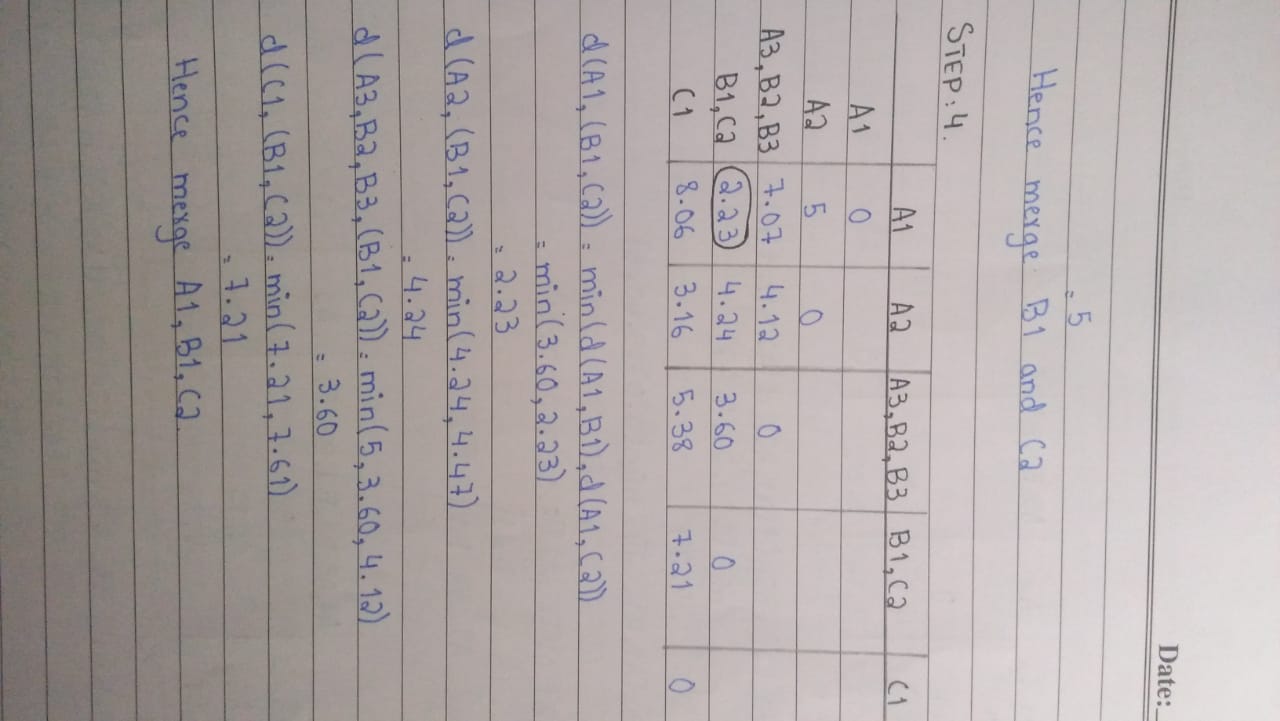 Date:
= 5
Hence merge B1 and C2
STEP:4.
A1 A2 A3,B2,B3 B1,C2 C1
A1 0
A2 5 0
A3,B2,B3 7.07 4.12 0
B1,C2 2.23 4.24 3.60 0
C1 8.06 3.16 5.38 7.21 0
d(A1,(B1,C2)) = min(d(A1,B1),d(A1,C2))
= min(3.60,2.23)
= 2.23
d(A2,(B1,C2)) = min(4.24,4.47)
= 4.24
d(A3,B2,B3,(B1,C2)) = min(5,3.60,4.12)
= 3.60
d(C1,(B1,C2)) = min(7.21,7.61)
= 7.21
Hence merge A1,B1,C2.